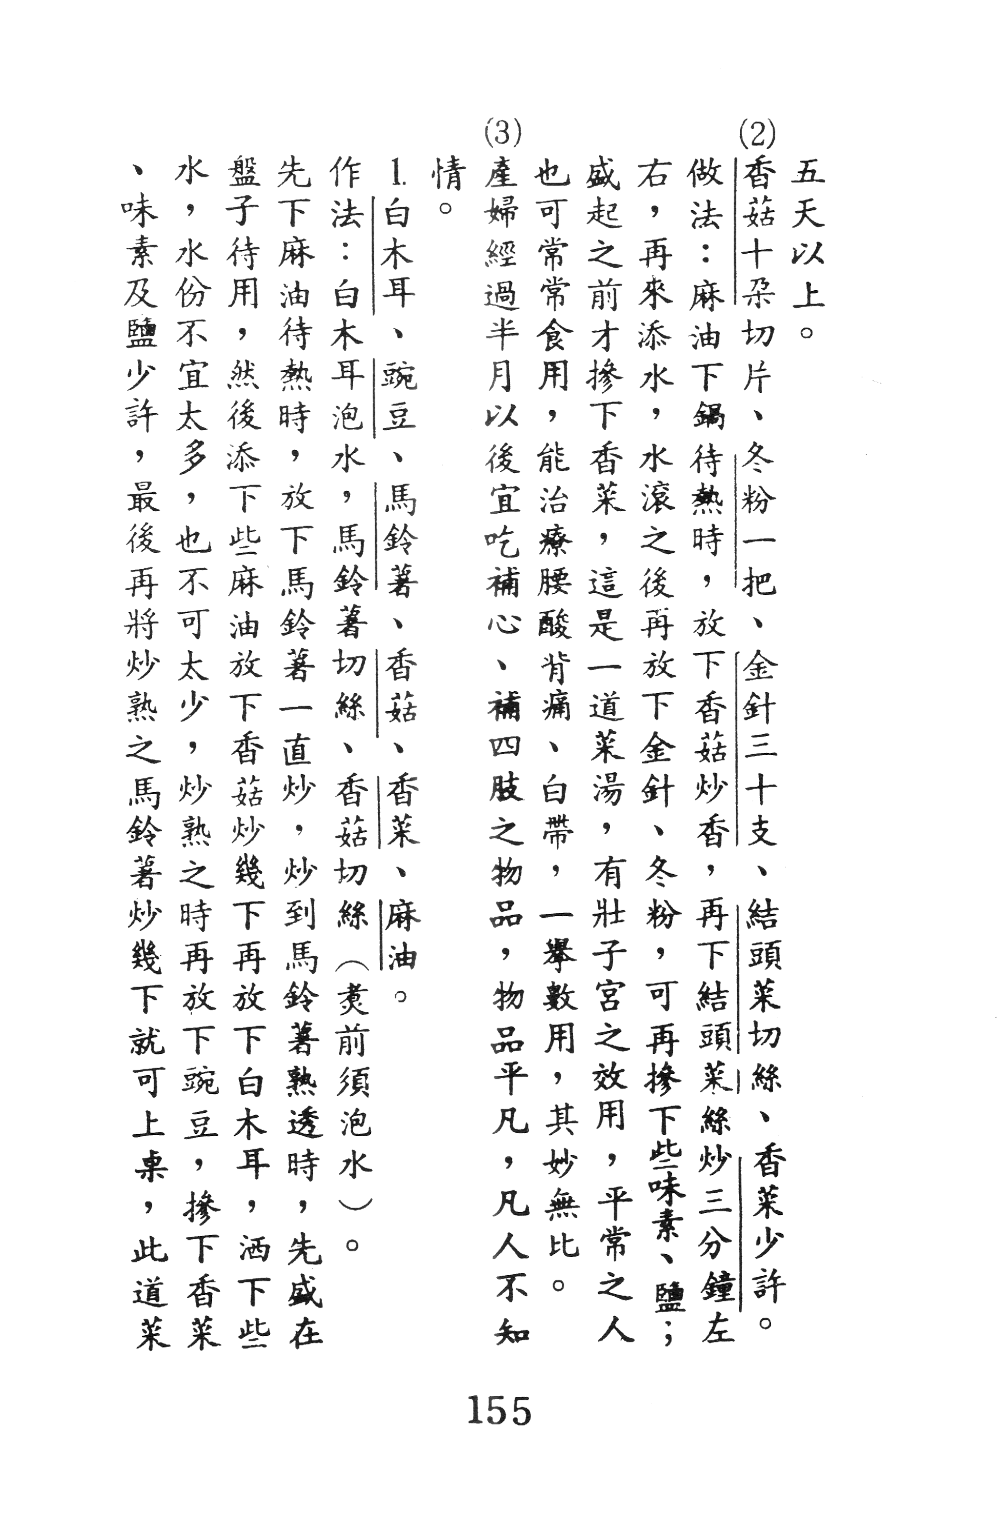 五天以上。
(2)香菇十朶切片、冬粉一把、金針三十支、結頭菜切絲、香菜少許。
做法：麻油下鍋待熱時，放下香菇炒香，再下結頭菜絲炒三分鐘左
右，再來添水，水滾之後再放下金針、冬粉，可再摻下些味素、鹽；
盛起之前才摻下香菜，這是一道菜湯，有壯子宮之效用，平常之人
也可常常食用，能治療腰酸背痛、白帶，一擧數用，其妙無比。
(3)產婦經過半月以後宜吃補心、補四肢之物品，物品平凡，凡人不知
情。
1.白木耳、豌豆、馬鈴薯、香菇、香菜、麻油。
作法：白木耳泡水，馬鈴薯切絲、香菇切絲（煑前須泡水）。
先下麻油待熱時，放下馬鈴薯一直炒，炒到馬鈴薯熟透時，先盛在
盤子待用，然後添下些麻油放下香菇炒幾下再放下白木耳，洒下些
水，水份不宜太多，也不可太少，炒熟之時再放下豌豆，摻下香菜
、味素及鹽少許，最後再將炒熟之馬鈴薯炒幾下就可上桌，此道菜
155